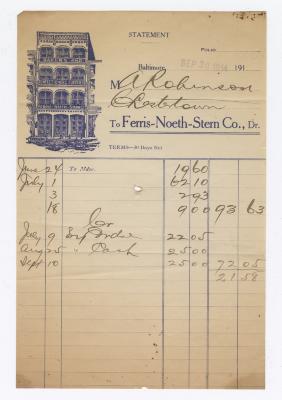 STATEMENT
FOLIO
Baltimore, SEP 30 1914 191
M A Robinson
Chestertown
To Ferris-Noeth-Stern Co., Dr.
TERMS—30 Days Net
June 24 To Mdse. 19 60
July 1 62 10
3 2 93
18 9 00 93 63
Cr
July 9 By Mdse 22 05
Aug 25 " Cash 25 00
Sept 10 25 00 72 05
21 58